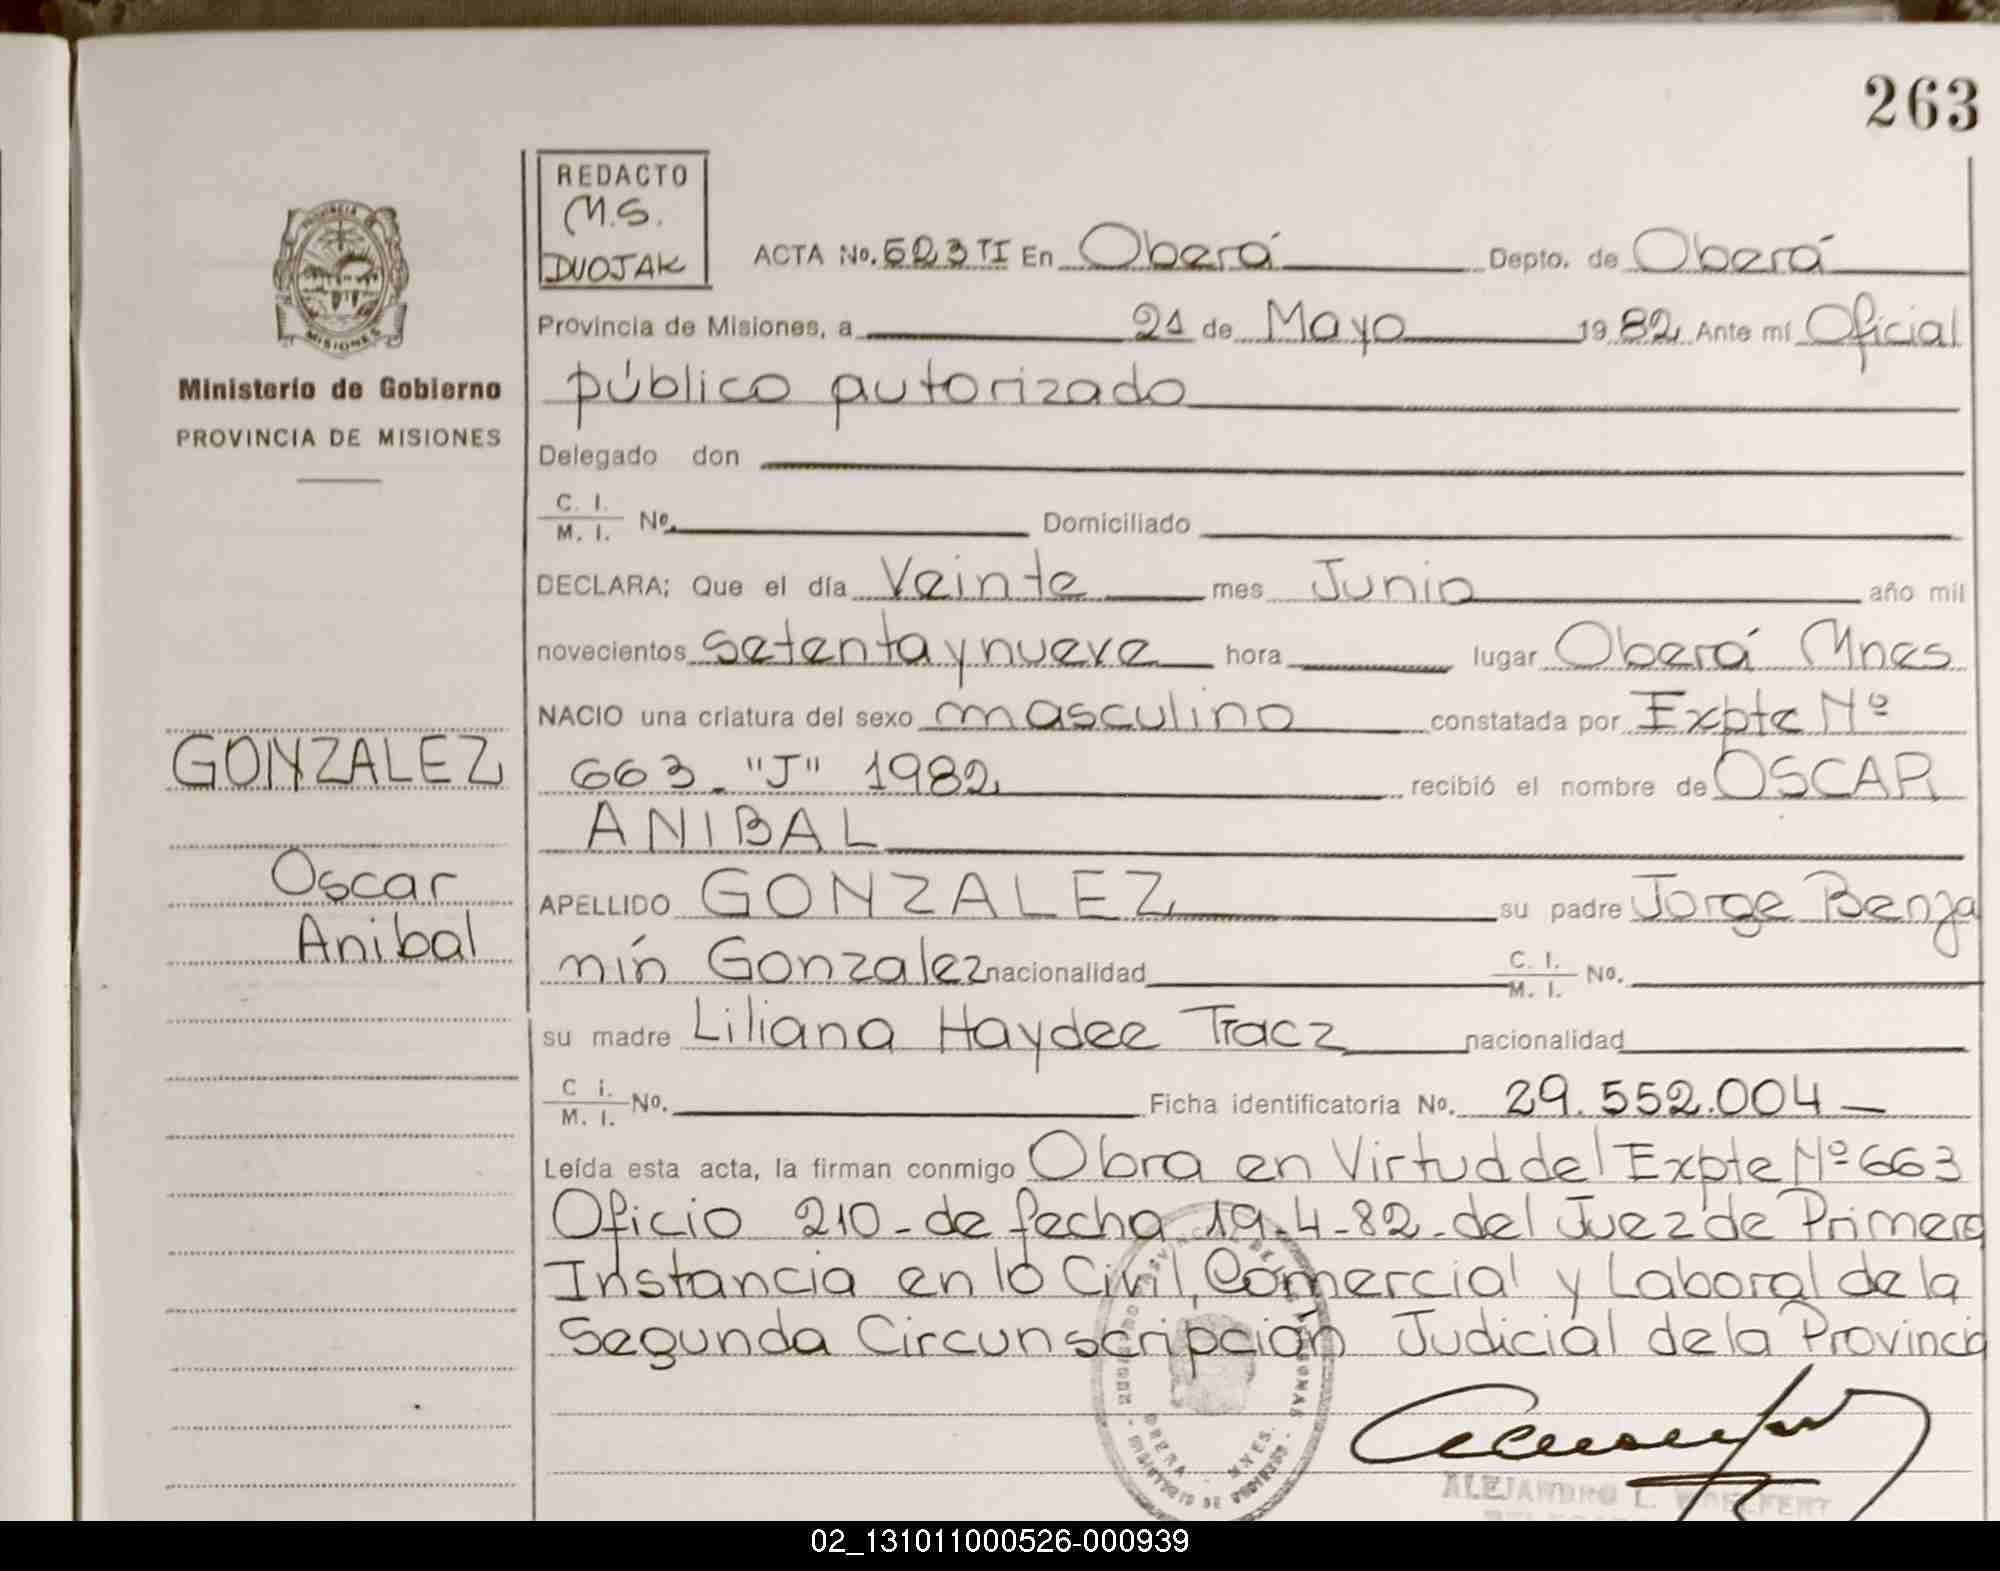 263
REDACTO
M.S.
DUOJAK
ACTA No. 523 TI En Oberá Depto. de Oberá
Provincia de Misiones, a 21 de Mayo 1982 Ante mí Oficial
público autorizado
Delegado don
C. I.
M. I. No. Domiciliado
DECLARA; Que el día Veinte mes Junio año mil
novecientos setenta y nueve hora lugar Oberá Mnes
NACIO una criatura del sexo masculino constatada por Expte Nº
663 - "J" 1982 recibió el nombre de OSCAR
ANIBAL
APELLIDO GONZALEZ su padre Jorge Benja
mín Gonzalez nacionalidad C. I. M. I. No.
su madre Liliana Haydee Tracz nacionalidad
C i. M. I. No. Ficha identificatoria No. 29.552.004 -
Leída esta acta, la firman conmigo Obra en Virtud del Expte Nº 663
Oficio 210 - de fecha 19-4-82 - del Juez de Primera
Instancia en lo Civil, Comercial y Laboral de la
Segunda Circunscripción Judicial de la Provincia
PROVINCIA
MISIONES
Ministerio de Gobierno
PROVINCIA DE MISIONES
GONZALEZ
Oscar
Anibal
ALEJANDRO L.
02_131011000526-000939